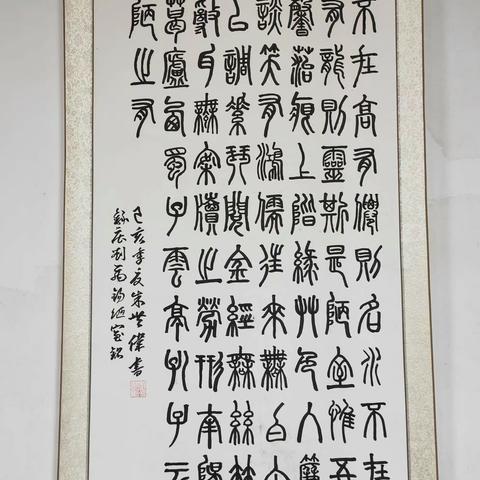 不在高有僊則名水不在
有龍則靈斯是陋室惟吾
馨苔痕上階綠艸色入簾
談笑有鴻儒往來無白丁
以調素琴閱金經無絲竹
亂耳無案牘之勞形南陽
葛廬西蜀子雲亭孔子云
陋之有
己亥季夏朱世書
錄唐劉禹錫陋室銘